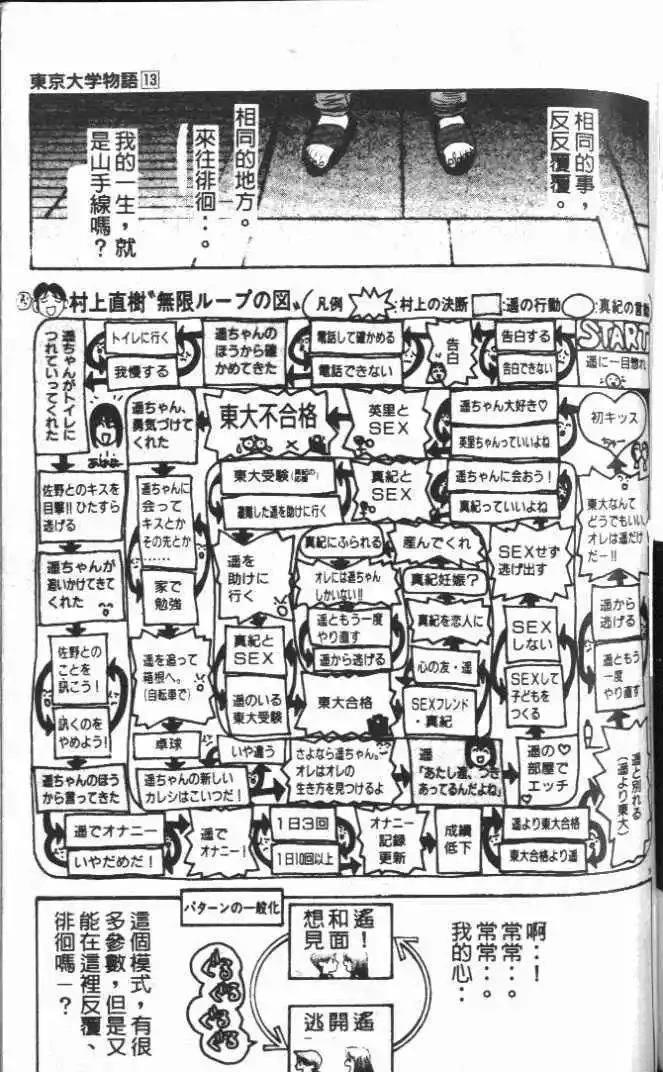 東京大学物語 13
相同的事，
反反覆覆。
相同的地方。
來往徘徊…。
我的一生，就
是山手線嗎？
村上直樹〝無限ループの図〟
凡例
:村上の決断
:遥の行動
:真紀の言動
START
遥に一目惚れ
告白する
告白できない
告白
電話して確かめる
電話できない
遥ちゃんの
ほうから確
かめてきた
トイレに行く
我慢する
遥ちゃんがトイレに
つれていってくれた
佐野とのキスを
目撃!!ひたすら
逃げる
遥ちゃんが
追いかけてきて
くれた
佐野との
ことを
訊こう！
訊くのを
やめよう！
遥ちゃんのほう
から言ってきた
遥でオナニー
いやだめだ！
遥で
オナニー！
1日3回
1日10回以上
オナニー
記録
更新
成績
低下
遥より東大合格
東大合格より遥
遥と別れる
（遥より東大）
遥ともう
一度
やり直す
遥から
逃げる
東大なんて
どうでもいい
オレは遥だけ
だー!!
初キッス
遥ちゃん大好き♡
英里ちゃんっていいよね
英里と
SEX
東大不合格
遥ちゃん、
勇気づけて
くれた
遥ちゃんに
会って
キスとか
その先とか
……
家で
勉強
遥を追って
箱根へ。
（自転車で）
卓球
遥ちゃんの新しい
カレシはこいつだ！
いや違う
さよなら遥ちゃん。
オレはオレの
生き方を見つけるよ
遥
「あたし達、つき
あってるんだよね」
遥の♡
部屋で
エッチ
SEXして
子どもを
つくる
SEX
しない
SEXせず
逃げ出す
遥ちゃんに会おう！
真紀っていいよね
真紀と
SEX
東大受験
遭難した遥を助けに行く
遥を
助けに
行く
真紀と
SEX
遥のいる
東大受験
東大合格
SEXフレンド
・真紀
心の友・遥
真紀を恋人に
真紀妊娠？
産んでくれ
真紀にふられる
オレには遥ちゃん
しかいない!!
遥ともう一度
やり直す
遥から逃げる
啊…！
常常…。
常常…。
我的心…
パターンの一般化
想和遙
見面！
逃開遙
ぐるぐる
ぐるぐる
這個模式，有很
多參數，但是又
能在這裡反覆、
徘徊嗎－？